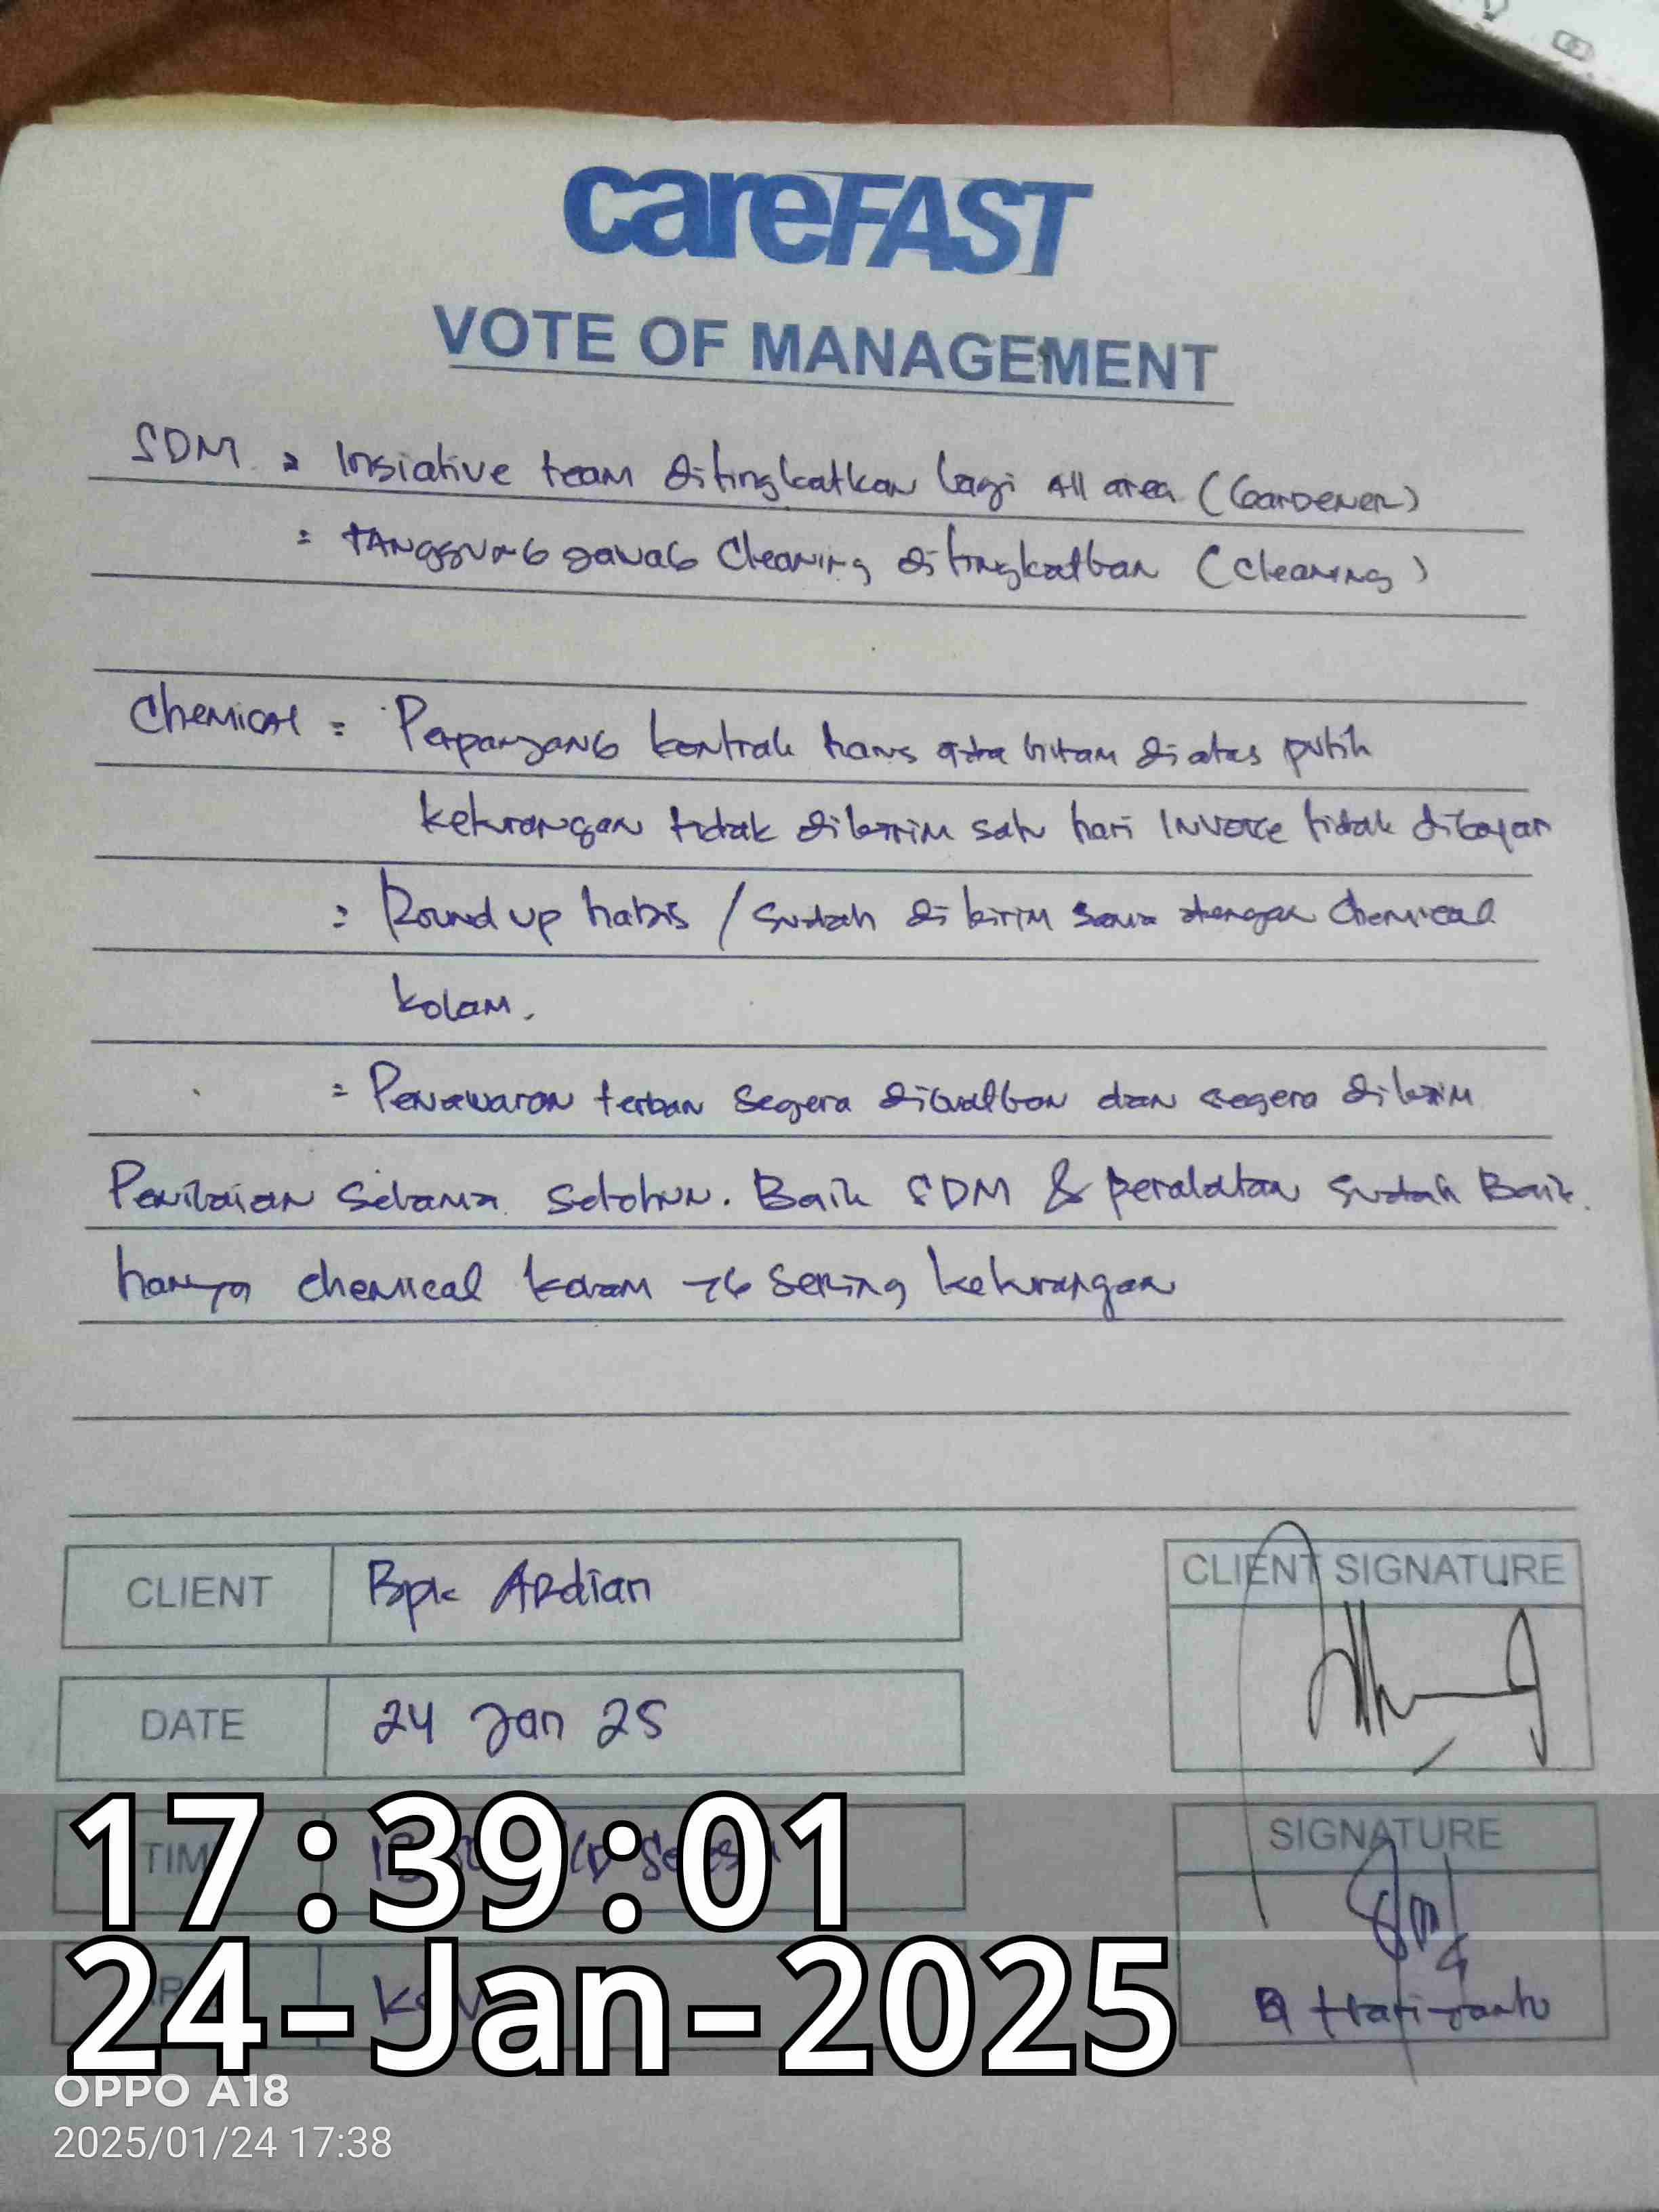 careFAST
VOTE OF MANAGEMENT
SDM = Insiative team ditingkatkan lagi All area (GARDENER)
= TANGGUNG JAWAB Cleaning ditingkatkan (Cleaning)
Chemical = Perpanjang kontrak harus ada hitam diatas putih
kekurangan tidak dikirim satu hari Invoice tidak dibayar
= Round up habis / sudah di kirim sama dengan Chemical
kolam.
= Penawaran terban segera dibuatkan dan segera dikirim
Penilaian selama setahun. Baik SDM & peralatan sudah Baik.
hanya chemical kolam yg sering kekurangan
CLIENT Bpk Ardian
CLIENT SIGNATURE
DATE 24 Jan 25
TIM
SIGNATURE
Hariyanto
17:39:01
24-Jan-2025
OPPO A18
2025/01/24 17:38